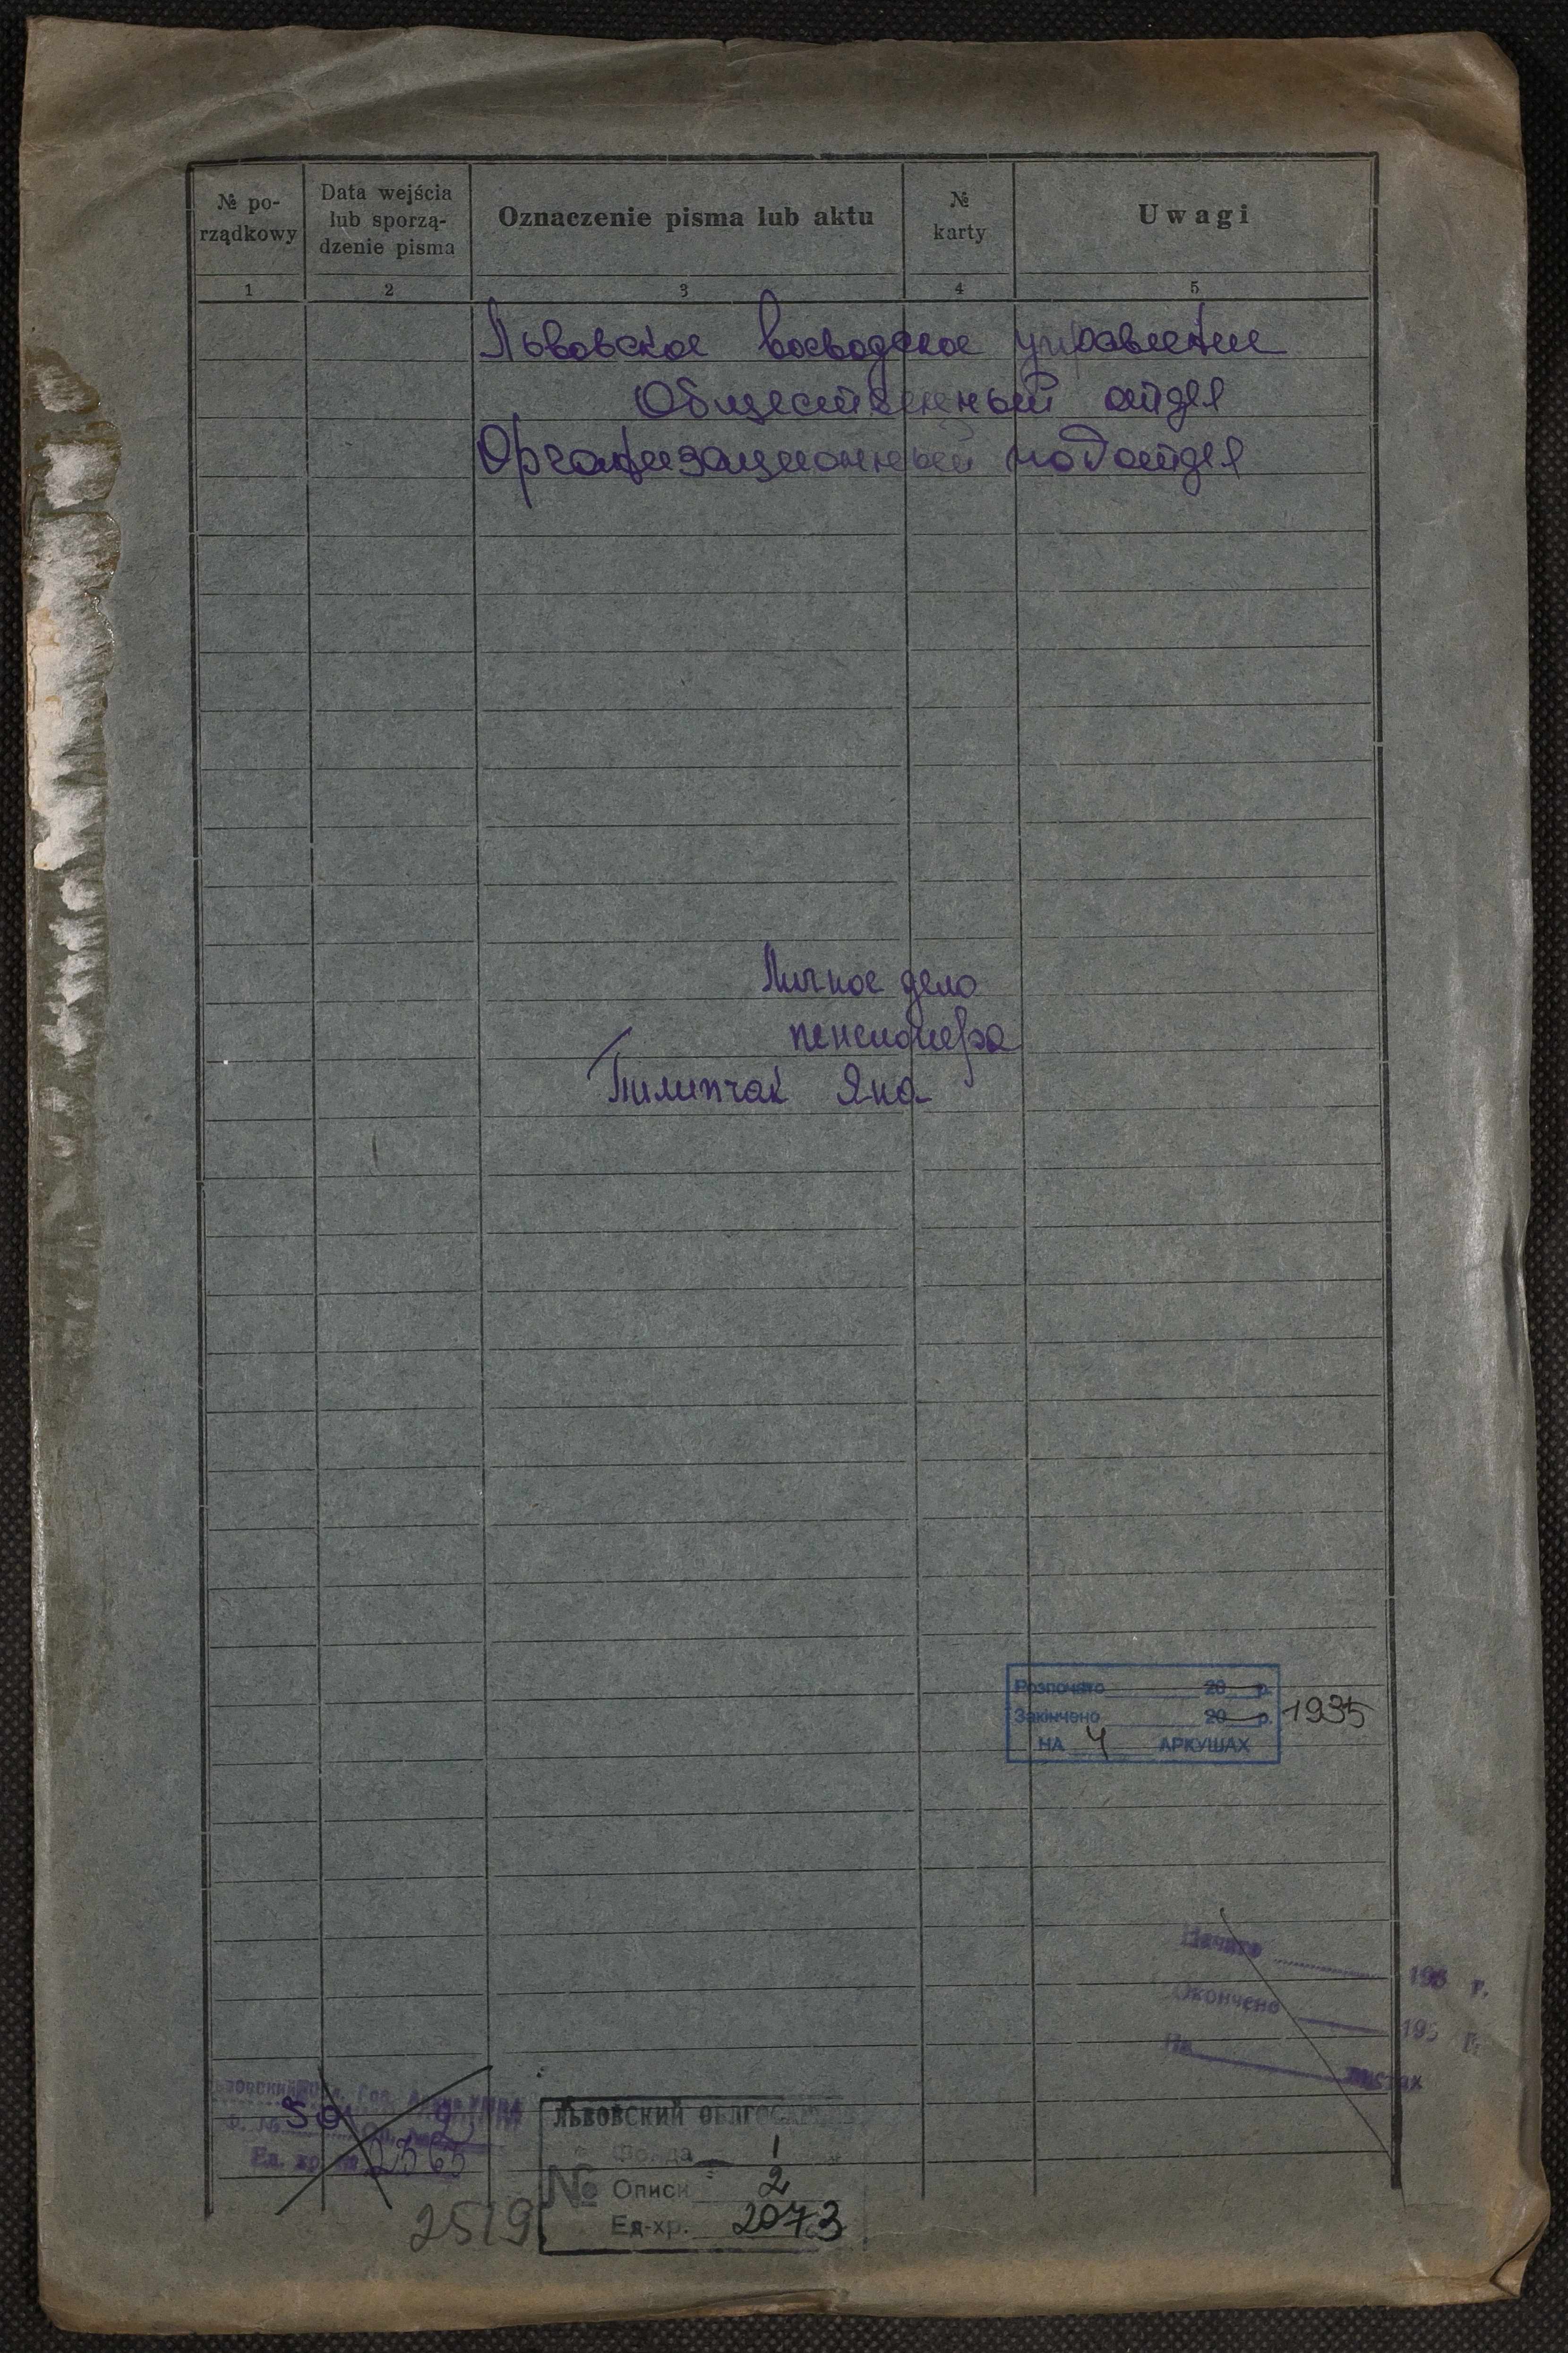 № po-
rządkowy
Data wejścia
lub sporzą-
dzenie pisma
Oznaczenie pisma lub aktu
№
karty
Uwagi
1 2 3 4 5
Львовское воеводское управление
Общественный отдел
Организационный подотдел
Личное дело
пенсионера
Пилипчак Яна
Розпочато 20 р.
Закінчено 20 р. 1935
НА 4 АРКУШАХ
Начато 195 г.
Окончено 195 г.
На листах
Ф. № 50 2
Ед. хр. 2565
2519
ЛЬВОВСКИЙ ОБЛГОС
Фонда 1
№ Описи 2
Ед-хр. 2073